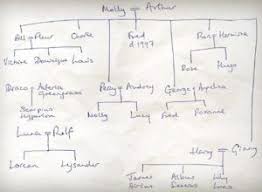 Molly = Arthur
Bill = Fleur Charlie Fred Ron = Hermione
d 1997
Victoire Dominique Louis Rose Hugo
Draco = Astoria Percy = Audrey George = Angelina
Greengrass
Scorpius Molly Lucy Fred Roxanne
Hyperion
Luna = Rolf
Harry = Ginny
Lorcan Lysander James Albus Lily
Sirius Severus Luna